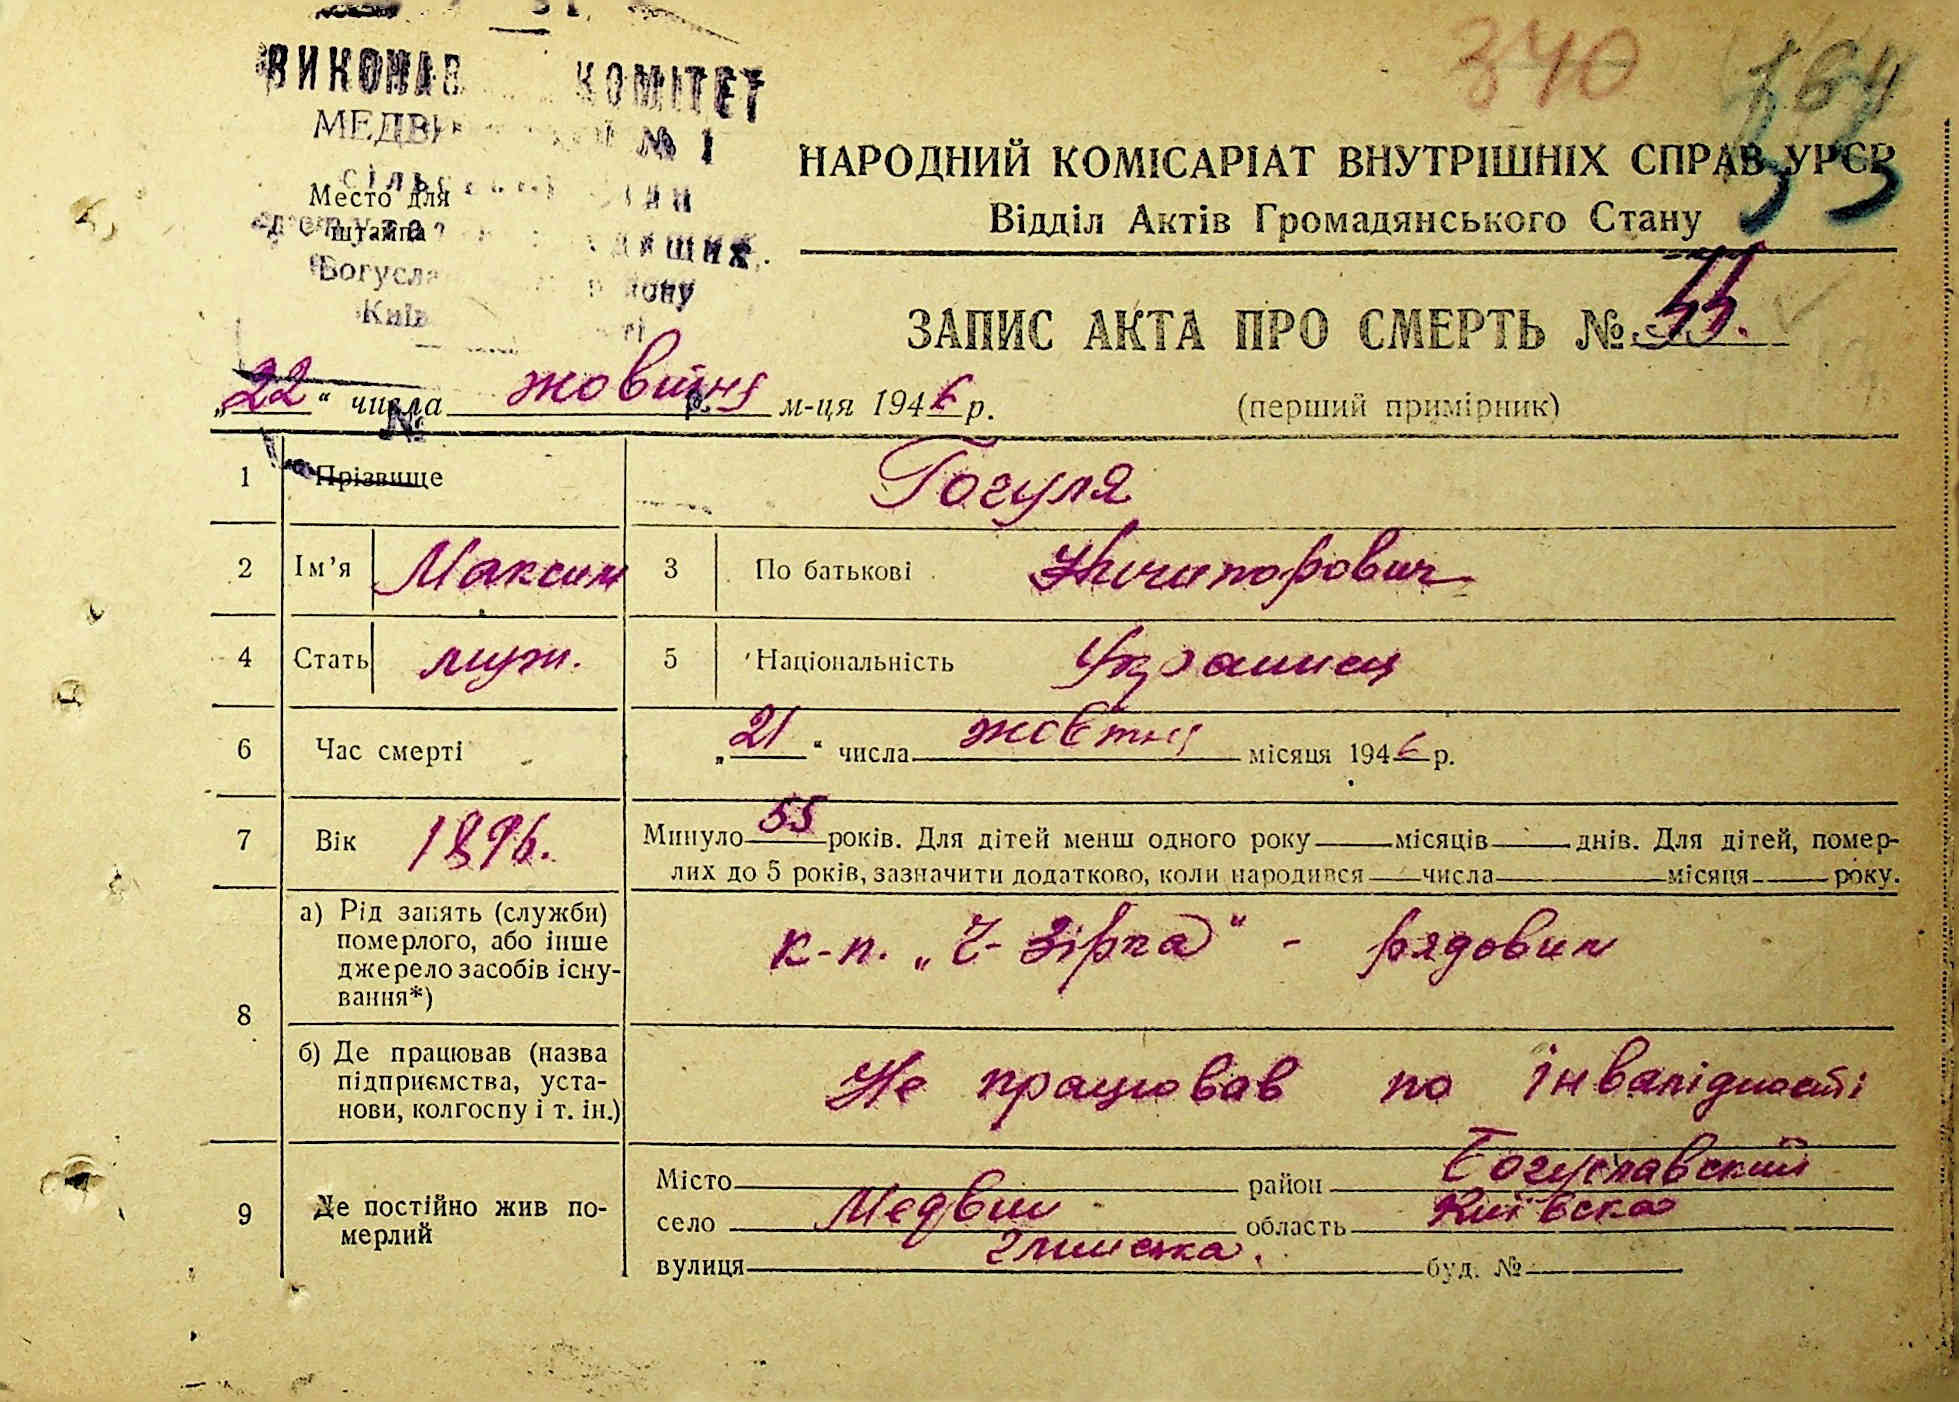 ВИКОНАВ КОМІТЕТ
№ 1
Место для
штампа
340
164
НАРОДНИЙ КОМІСАРІАТ ВНУТРІШНІХ СПРАВ УРСР
Відділ Актів Громадянського Стану
ЗАПИС АКТА ПРО СМЕРТЬ № 55.
„22“ числа жовтня м-ця 1946 р.
(перший примірник)
1 Прізвище Гогуля
2 Ім’я Максим 3 По батькові Ничипорович
4 Стать муж. 5 Національність Українец
6 Час смерті „21“ числа жовтня місяця 1946 р.
7 Вік 1896. Минуло 55 років. Для дітей менш одного року місяців днів. Для дітей, помер-
лих до 5 років, зазначити додатково, коли народився числа місяця року.
8 а) Рід занять (служби)
померлого, або інше
джерело засобів існу-
вання*)
к-п. „Ч-Зірка“ - рядовим
б) Де працював (назва
підприємства, уста-
нови, колгоспу і т. ін.)
Не працював по інвалідності
9 Де постійно жив по-
мерлий
Місто район Богуславский
село Медвин область Київска
вулиця буд. №